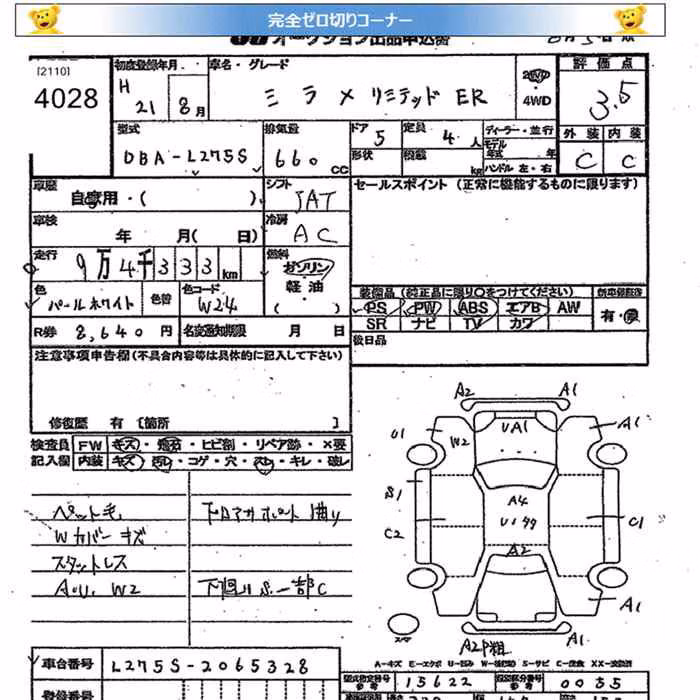 完全ゼロ切りコーナー
オークション出品申込書
[2110]
4028
初度登録年月
H 21 8月
車名・グレード
ミラ メリミテッド ER
2WD
・
4WD
評価点
3.5
外装 内装
C C
型式
DBA-L275S
排気量
660 CC
ドア 5
定員 4人
形状
積載 kg
ディーラー・並行
モデル
年式 年
ハンドル 左・右
車歴
自家用・( )
シフト
AT
車検
年 月( 日)
冷房
AC
セールスポイント (正常に機能するものに限ります)
走行
9万4千333km
燃料
ガソリン
軽油
( )
色
パールホワイト
色替
色コード
W24
装備品 (純正品に限り○をつけてください)
PS PW ABS エアB AW
SR ナビ TV カワ
有・無
R券 8,640円
名変通知期限 月 日
後日品
注意事項申告欄 (不具合内容等は具体的に記入して下さい)
修復歴 有 [箇所 ]
検査員 FW キズ・飛石・ヒビ割・リペア跡・×要
記入欄 内装 キズ・汚れ・コゲ・穴・スレ・キレ・破レ
ペット毛
Wカバーキズ
スタットレス
A.U. W2
下回りS.一部C
A2 A1
U1 W2 UA1 A1
S1 A4
C2 U1 C1
A2
A1
スペア
A1
A2P粗
A-キズ E-エクボ U-凹み W-補修跡 S-サビ C-腐食 XX-交換済
車台番号 L275S-2065328
型式指定番号 15622
類別区分番号 0055
登録番号
長さ